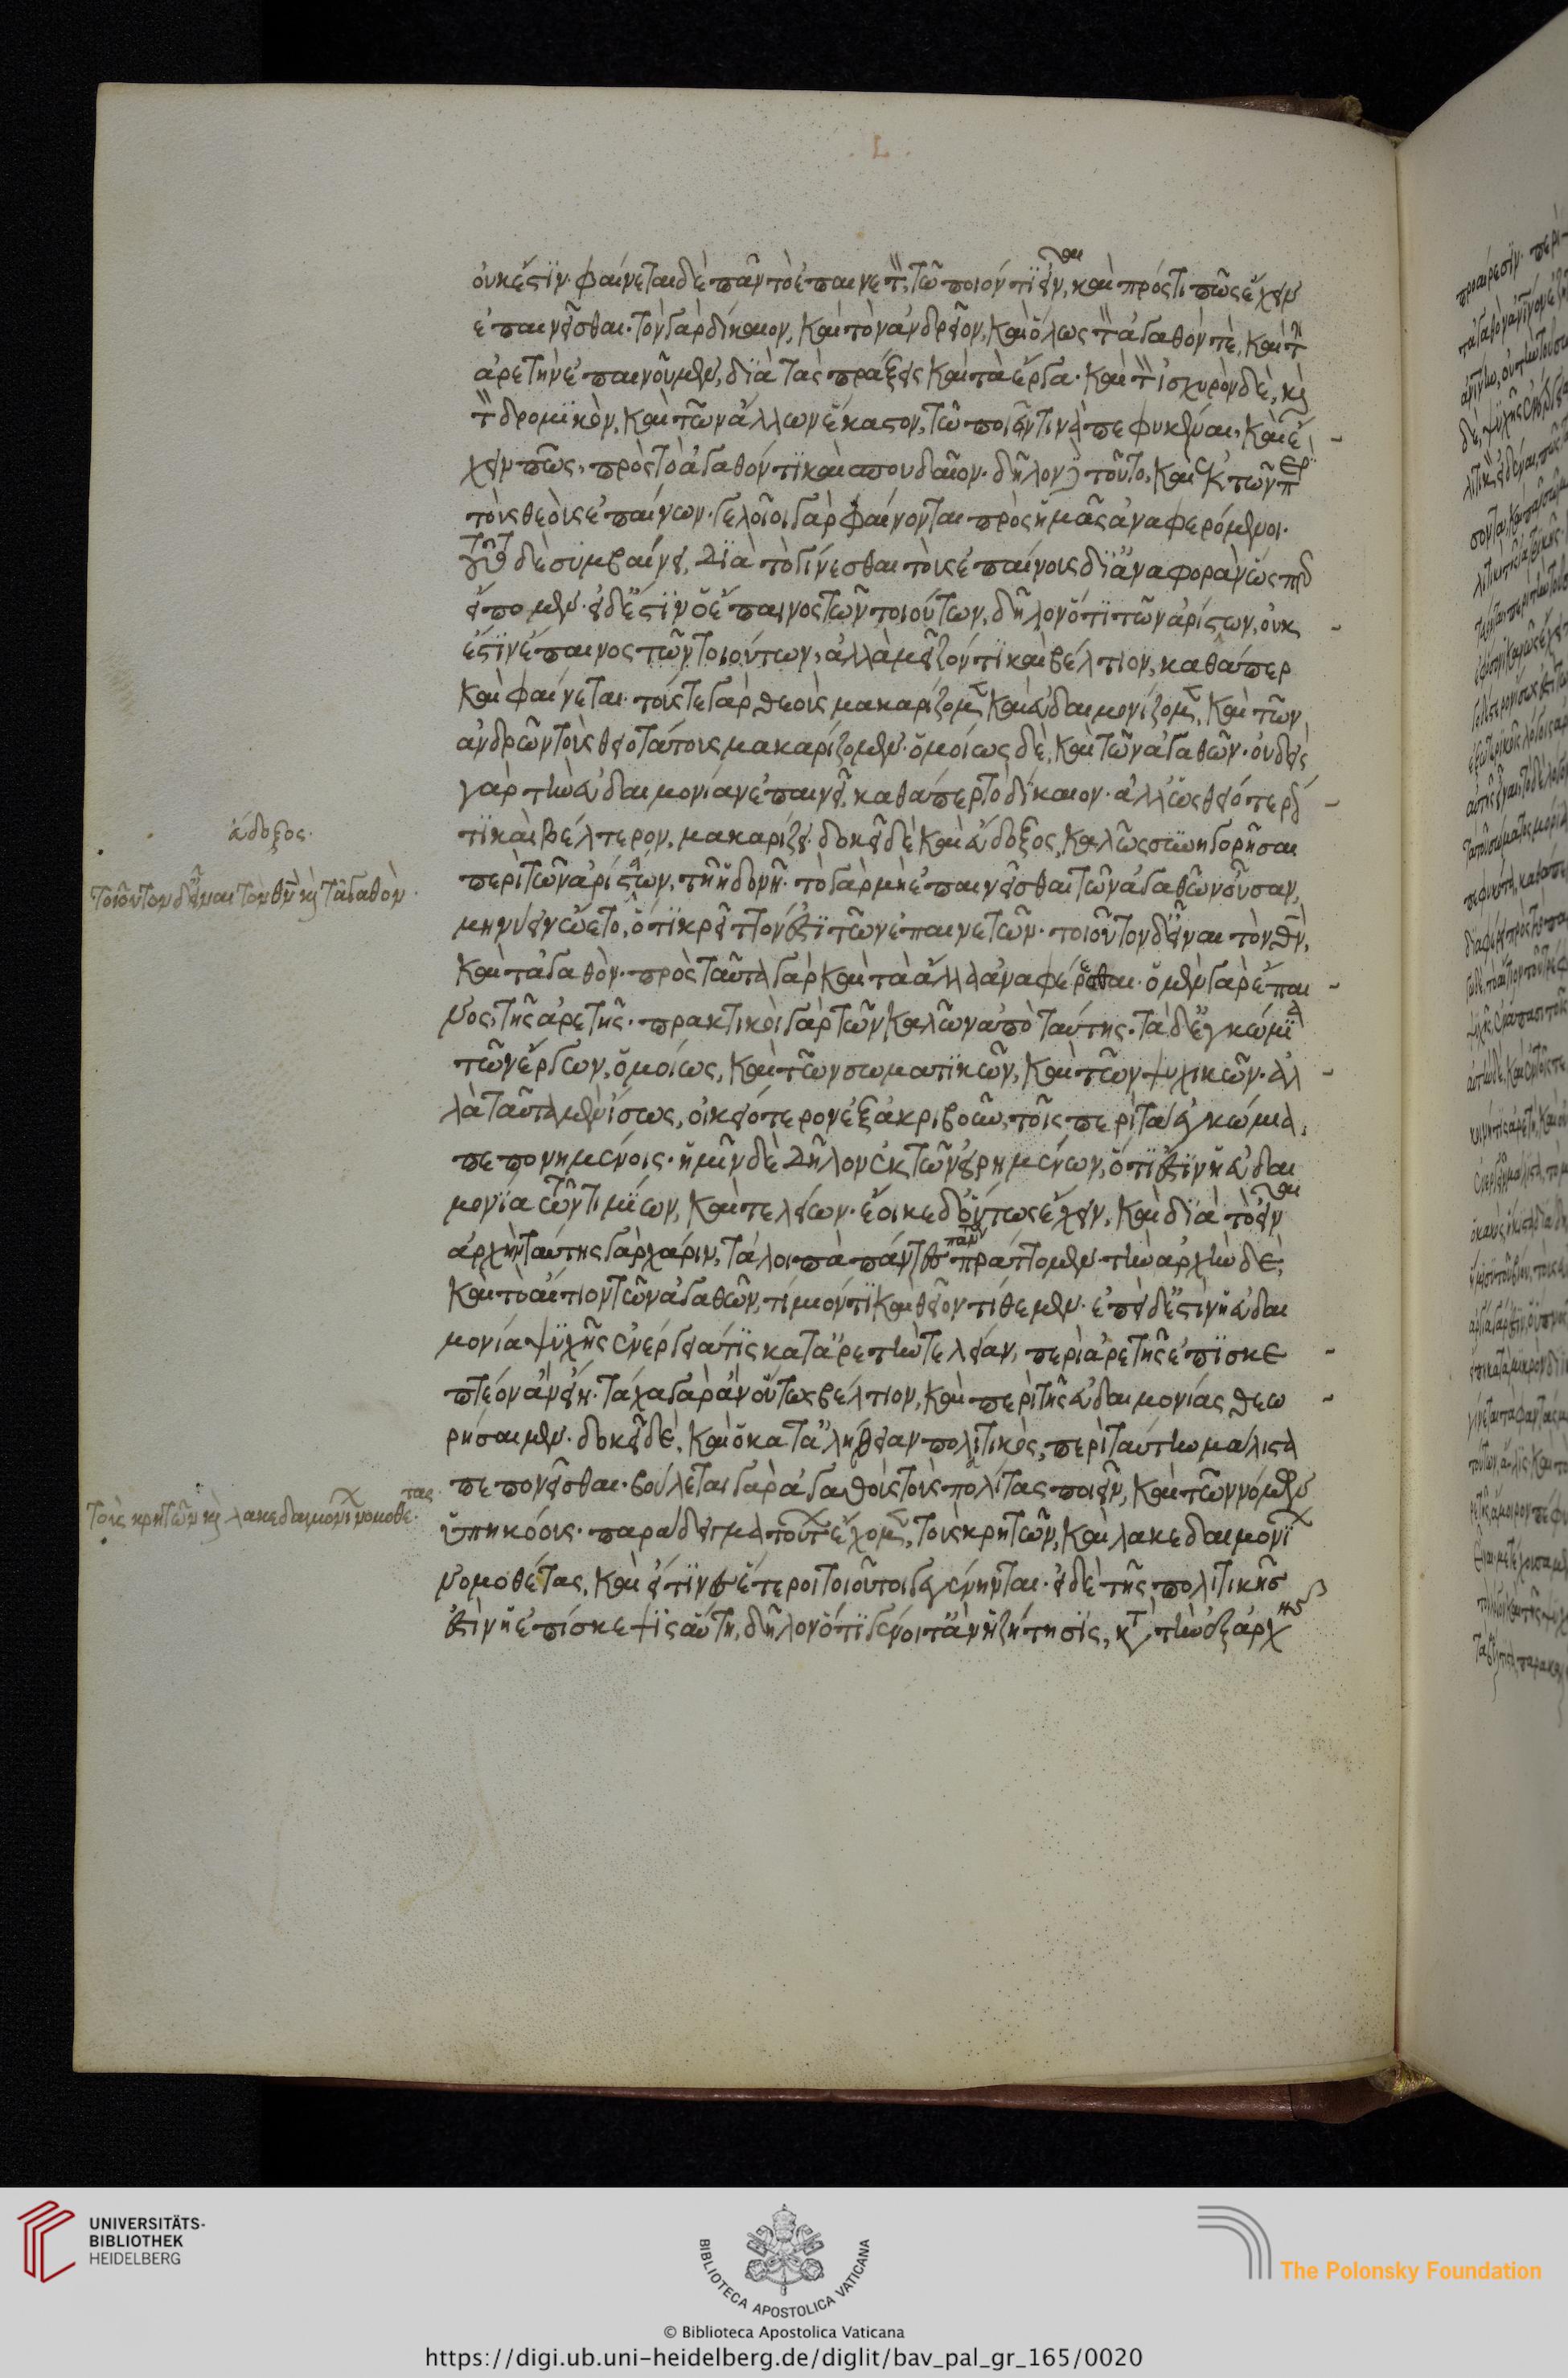 L
οὐκ ἔστϊν· φαίνεται δὲ πᾶν τὸ ἐπαινετ, τῶ ποιόν τϊ εἶναι, καὶ πρός τι πῶς ἔχειν
ἐπαινεῖσθαι· τὸν γὰρ δίκαιον, καὶ τὸν ἀνδρεῖον, καὶ ὅλως τ ἀγαθόν τὲ, καὶ τ
ἀρετὴν ἐπαινοῦμεν, δϊὰ τὰς πράξεις καὶ τὰ ἔργα· καὶ τ ἰσχυρὸν δὲ, κὶ
τ δρομϊκὸν, καὶ τῶν ἄλλων ἕκαστον, τῶ ποιόν τινὰ πεφυκέναι, καὶ ἔ
χειν πῶς, πρὸς τὸ ἀγαθόν τϊ καὶ σπουδαῖον· δῆλον δὲ τοῦτο, καὶ ἐκ τῶν περϊ
τοὺς θεοὺς ἐπαίνων· γελοῖοι γὰρ φαίνονται πρὸς ἡμᾶς ἀναφερόμενοι·
τοῦτο δὲ συμβαίνει, δϊὰ τὸ γίνεσθαι τοὺς ἐπαίνους δϊ ἀναφορὰν ὥσπερ
εἴπομεν· εἰ δ ἔστϊν ὁ ἔπαινος τῶν τοιούτων, δῆλον ὅτϊ τῶν ἀρίστων, οὐκ
ἔστϊν ἔπαινος τῶν τοιούτων, ἀλλὰ μεῖζόν τϊ καὶ βέλτιον, καθάπερ
καὶ φαίνεται· τούς τε γὰρ θεοὺς μακαρίζομεν καὶ εὐδαιμονίζομεν, καὶ τῶν
ἀνδρῶν τοὺς θειοτάτους μακαρίζομεν· ὁμοίως δὲ, καὶ τῶν ἀγαθῶν· οὐδεὶς
γὰρ τὴν εὐδαιμονίαν ἐπαινεῖ, καθάπερ τὸ δίκαιον· ἀλλ ὡς θειότερόν
τϊ καὶ βέλτερον, μακαρίζει· δοκεῖ δὲ καὶ εὔδοξος, καλῶς συνηγορῆσαι
περὶ τῶν ἀριστείων, τῆ ἡδονῆ· τὸ γὰρ μὴ ἐπαινεῖσθαι τῶν ἀγαθῶν οὖσαν,
μηνύειν ὤετο, ὅτϊ κρεῖττόν ἐστϊ τῶν ἐπαινετῶν· τοιοῦτον δ εἶναι τὸν θν,
καὶ τἀγαθὸν· πρὸς ταῦτα γὰρ καὶ τὰ ἄλλα ἀναφέρεσθαι· ὁ μὲν γὰρ ἔπαι
νος, τῆς ἀρετῆς· πρακτικοὶ γὰρ τῶν καλῶν ἀπὸ ταύτης· τὰ δ ἐγκώμϊα
τῶν ἔργων, ὁμοίως, καὶ τῶν σωματϊκῶν, καὶ τῶν ψυχικῶν· ἀλ
λὰ ταῦτα μὲν ἴσως, οἰκειότερον ἐξακριβοῦν, τοῖς περὶ τὰ ἐγκώμια,
πεπονημένοις· ἡμῖν δὲ δῆλον ἐκ τῶν εἰρημένων, ὅτϊ ἐστϊν ἡ εὐδαι
μονϊα τῶν τιμϊων, καὶ τελείων· ἔοικε δ οὕτως ἔχειν, καὶ δϊὰ τὸ εἶναι
ἀρχήν ταύτης γὰρ χάριν, τὰ λοιπὰ πάντα πάντες πράττομεν· τὴν ἀρχὴν δὲ,
καὶ τὸ αἴτιον τῶν ἀγαθῶν, τίμιόν τϊ καὶ θεῖον τίθεμεν· ἐπεὶ δ ἔστϊν ἡ εὐδαι
μονία ψϋχῆς ἐνέργειά τϊς κατ ἀρετὴν τελείαν, περὶ ἀρετῆς ἐπϊσκε
πτέον ἂν εἴη· τάχα γὰρ ἂν οὕτως βέλτιον, καὶ περὶ τῆς εὐδαιμονίας θεω
ρήσαιμεν· δοκεῖ δὲ, καὶ ὁ κατ ἀλήθειαν πολιτικὸς, περὶ ταύτην μάλιστα
πεπονεῖσθαι· βούλεται γὰρ ἀγαθοὺς τοὺς πολίτας ποιεῖν, καὶ τῶν νόμων
ὑπηκόους· παράδειγμα τούτων ἔχομεν, τοὺς κρητῶν, καὶ λακεδαιμονϊων
νομοθέτας, καὶ εἴ τϊνες ἕτεροι τοιοῦτοι γεγένηνται· εἰ δὲ τῆς πολιτικῆς
ἐστὶν ἡ ἐπίσκεψϊς αὕτη, δῆλον ὅτϊ γένοιτ ἂν ἡ ζήτησϊς, κατὰ τὴν ἐξ ἀρχῆς
εὔδοξος·
τοιοῦτον δ εἶναι τὸν θν κὶ τἀγαθὸν·
τοὺς κρητῶν κὶ λακεδαιμονίων νομοθέτας·
UNIVERSITÄTS-
BIBLIOTHEK
HEIDELBERG
BIBLIOTECA APOSTOLICA VATICANA
The Polonsky Foundation
© Biblioteca Apostolica Vaticana
https://digi.ub.uni-heidelberg.de/diglit/bav_pal_gr_165/0020